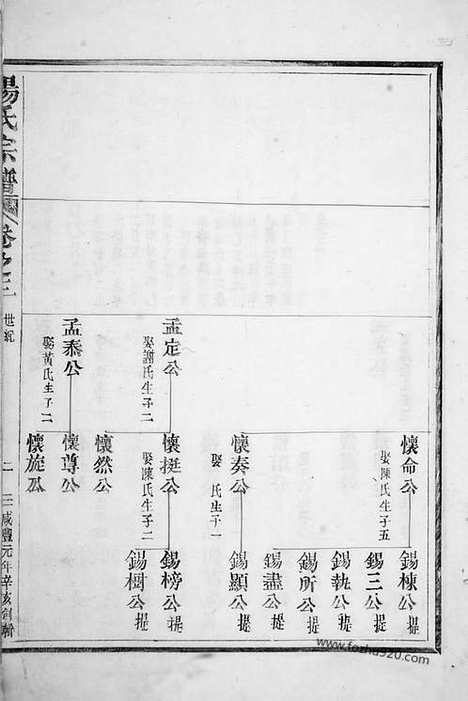 懷命公
娶陳氏生子五
懷奏公
娶 氏生子一
孟定公
娶謝氏生子二
懷挺公
娶陳氏生子二
懷然公
孟泰公
娶黃氏生子二
懷尊公
懷旋公
錫棟公提
錫三公提
錫執公提
錫所公提
錫盡公提
錫顯公提
錫榜公提
錫樹公提
楊氏宗譜
卷之三
世系
二
咸豐元年辛亥
www.fozhu920.com